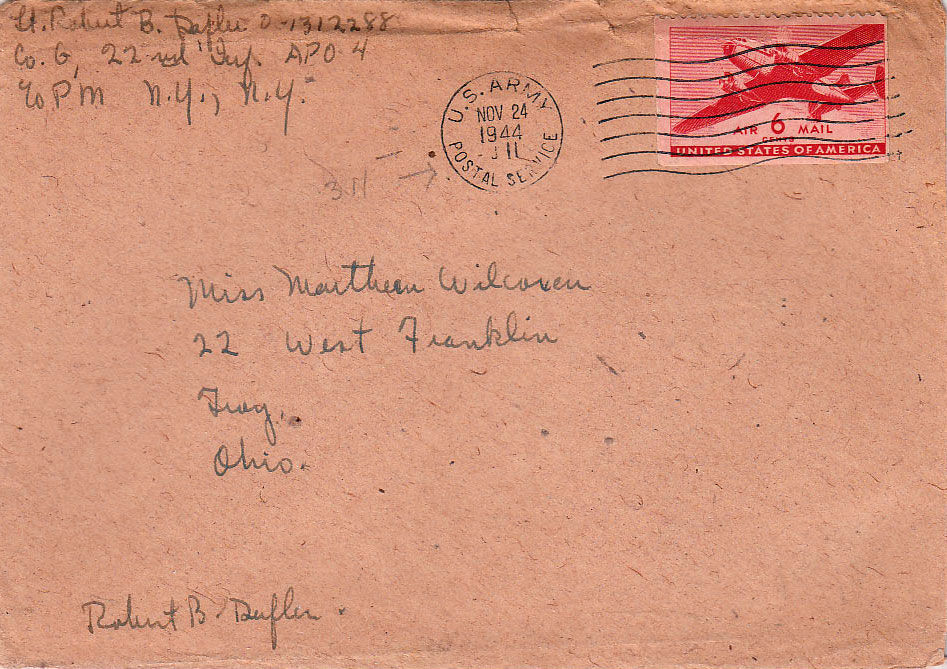 Lt. Robert B. Dufler O-1312288
Co. G, 22nd Inf. APO 4
c/o PM N.Y., N.Y.
U.S. ARMY
NOV 24
1944
POSTAL SERVICE
AIR 6 MAIL
CENTS
UNITED STATES OF AMERICA
311
Miss Marthean Wilcoxen
22 West Franklin
Troy,
Ohio.
Robert B Dufler